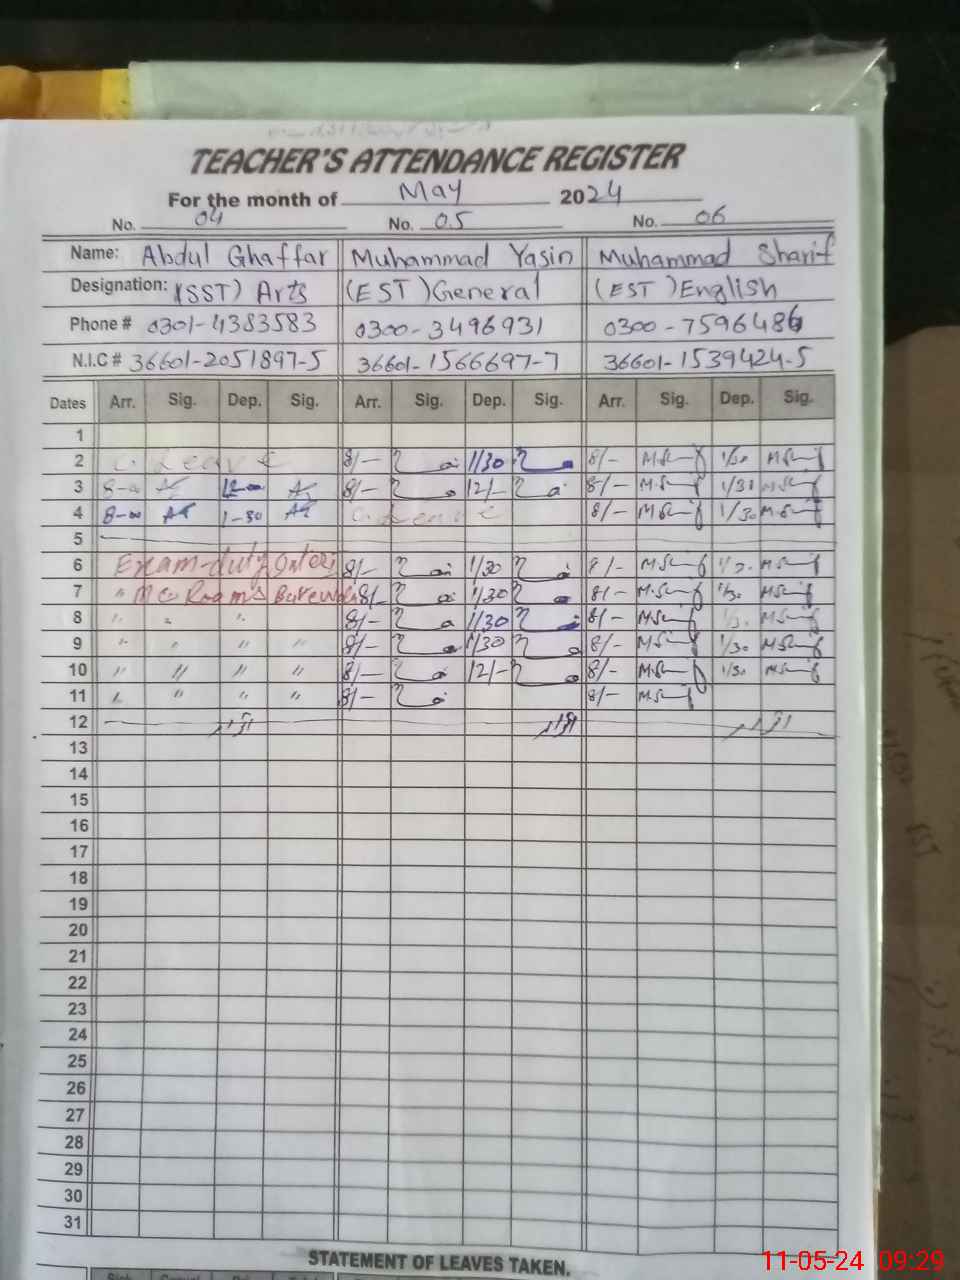 TEACHER'S ATTENDANCE REGISTER
For the month of May 2024
No. 04 No. 05 No. 06
Name: Abdul Ghaffar Muhammad Yasin Muhammad Sharif
Designation: (SST) Arts (EST) General (EST) English
Phone # 0301-4383583 0300-3496931 0300-7596486
N.I.C # 36601-2051897-5 36601-1566697-7 36601-1539424-5
Dates Arr. Sig. Dep. Sig. Arr. Sig. Dep. Sig. Arr. Sig. Dep. Sig.
1
2 C. Leave 8/- 1/30 8/- M.Sharif 1/30 M.Sharif
3 8-00 12-00 8/- 12/- 8/- M.Sharif 1/30 M.Sharif
4 8-00 1-30 C. Leave 8/- M.Sharif 1/30 M.Sharif
5
6 Exam-duty Inter 8/- 1/30 8/- M.Sharif M.Sharif
7 " 8/- 1/30 8/- M.Sharif 1/30 M.Sharif
8 " " " 8/- 1/30 8/- M.Sharif 1/30 M.Sharif
9 " " " " 8/- 1/30 8/- M.Sharif 1/30 M.Sharif
10 " " " " 8/- 12/- 8/- M.Sharif 1/30 M.Sharif
11 " " " " 8/- 8/- M.Sharif
12 اتوار اتوار اتوار
13
14
15
16
17
18
19
20
21
22
23
24
25
26
27
28
29
30
31
STATEMENT OF LEAVES TAKEN.
11-05-24 09:29